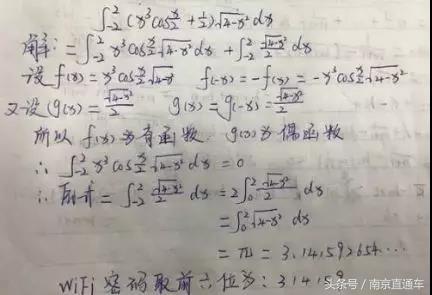 ∫₋₂² (x³cos x/2 + 1/2)√4-x² dx
解:=∫₋₂² x³cos x/2 √4-x² dx + ∫₋₂² √4-x²/2 dx
设 f(x)=x³cos x/2 √4-x f(-x)=-f(x)=-x³cos x/2 √4-x²
又设(g(x)=√4-x²/2 g(x)=g(-x)=√4-x²/2
所以 f(x)为奇函数 g(x)为偶函数
∴ ∫₋₂² x³cos x/2 √4-x² dx =0
∴ 原式=∫₋₂² √4-x²/2 dx =2∫₀² √4-x²/2 dx
=∫₀² √4-x² dx
=π=3.141592654...
WiFi密码取前六位为:314159
头条号/南京直通车